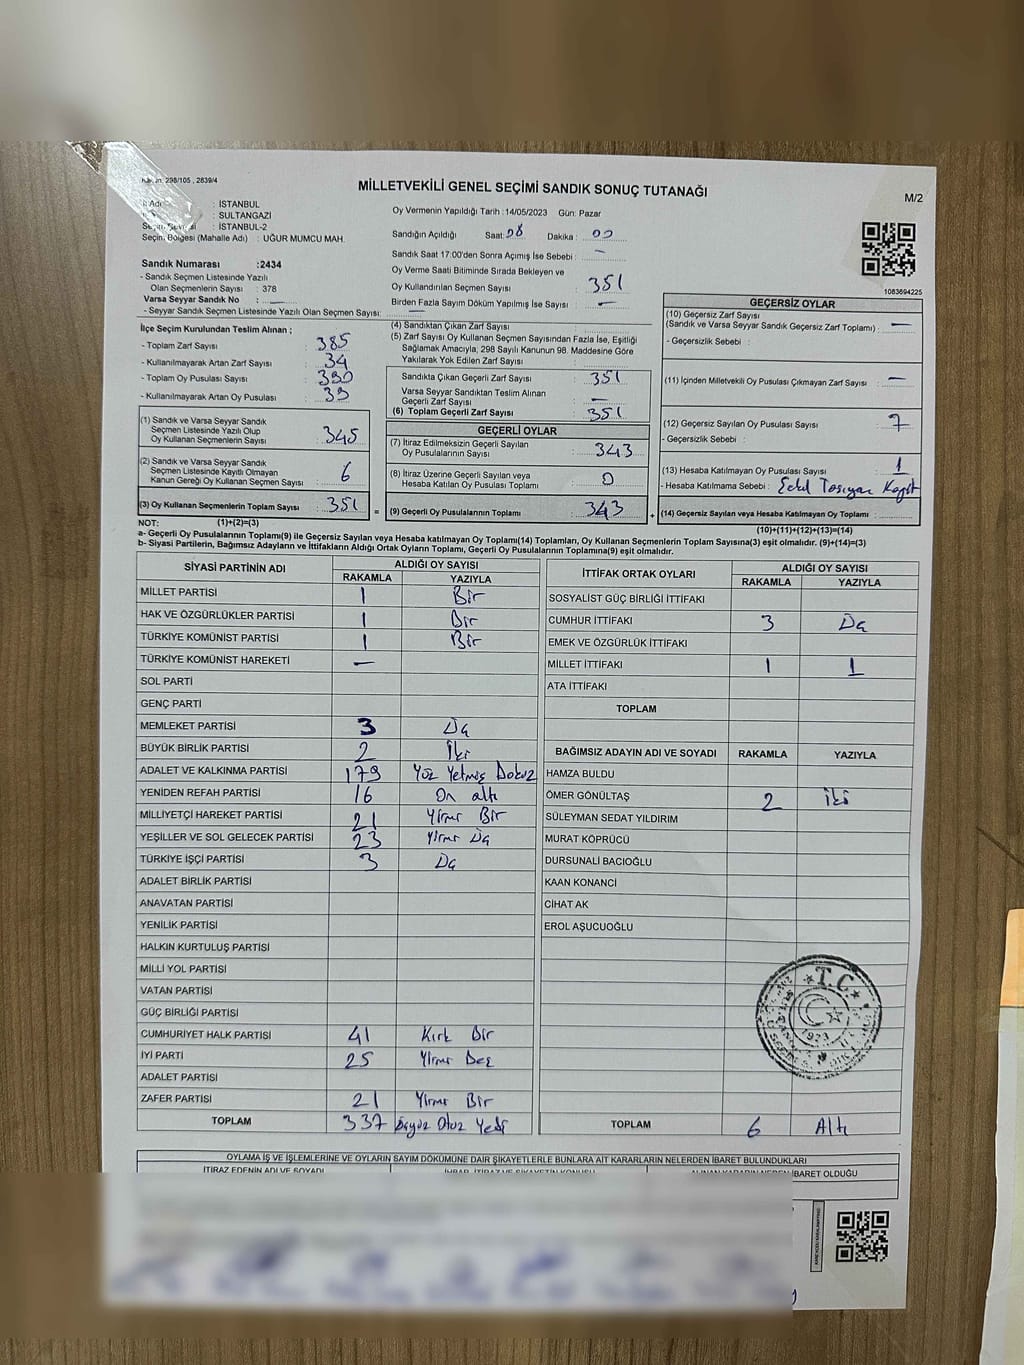 MİLLETVEKİLİ GENEL SEÇİMİ SANDIK SONUÇ TUTANAĞI
M/2
298/105 , 2839/4
: İSTANBUL
: SULTANGAZİ
: İSTANBUL-2
Seçim Bölgesi (Mahalle Adı) : UĞUR MUMCU MAH.
Sandık Numarası :2434
- Sandık Seçmen Listesinde Yazılı
Olan Seçmenlerin Sayısı : 378
Varsa Seyyar Sandık No : —
- Seyyar Sandık Seçmen Listesinde Yazılı Olan Seçmen Sayısı: —
Oy Vermenin Yapıldığı Tarih :14/05/2023 Gün: Pazar
Sandığın Açıldığı Saat: 08 Dakika : 00
Sandık Saat 17:00'den Sonra Açımış İse Sebebi : —
Oy Verme Saati Bitiminde Sırada Bekleyen ve
Oy Kullandırılan Seçmen Sayısı : 351
Birden Fazla Sayım Döküm Yapılmış İse Sayısı : —
1083694225
İlçe Seçim Kurulundan Teslim Alınan ;
- Toplam Zarf Sayısı : 385
- Kullanılmayarak Artan Zarf Sayısı : 34
- Toplam Oy Pusulası Sayısı : 390
- Kullanılmayarak Artan Oy Pusulası : 39
(1) Sandık ve Varsa Seyyar Sandık
Seçmen Listesinde Yazılı Olup
Oy Kullanan Seçmenlerin Sayısı : 345
(2) Sandık ve Varsa Seyyar Sandık
Seçmen Listesinde Kayıtlı Olmayan
Kanun Gereği Oy Kullanan Seçmen Sayısı : 6
(3) Oy Kullanan Seçmenlerin Toplam Sayısı : 351
(4) Sandıktan Çıkan Zarf Sayısı :
(5) Zarf Sayısı Oy Kullanan Seçmen Sayısından Fazla İse, Eşitliği
Sağlamak Amacıyla, 298 Sayılı Kanunun 98. Maddesine Göre
Yakılarak Yok Edilen Zarf Sayısı :
Sandıkta Çıkan Geçerli Zarf Sayısı : 351
Varsa Seyyar Sandıktan Teslim Alınan
Geçerli Zarf Sayısı : —
(6) Toplam Geçerli Zarf Sayısı : 351
GEÇERLİ OYLAR
(7) İtiraz Edilmeksizin Geçerli Sayılan
Oy Pusulalarının Sayısı : 343
(8) İtiraz Üzerine Geçerli Sayılan veya
Hesaba Katılan Oy Pusulası Toplamı : 0
= (9) Geçerli Oy Pusulalarının Toplamı : 343 +
GEÇERSİZ OYLAR
(10) Geçersiz Zarf Sayısı
(Sandık ve Varsa Seyyar Sandık Geçersiz Zarf Toplamı) : —
- Geçersizlik Sebebi :
(11) İçinden Milletvekili Oy Pusulası Çıkmayan Zarf Sayısı : —
(12) Geçersiz Sayılan Oy Pusulası Sayısı : 7
- Geçersizlik Sebebi :
(13) Hesaba Katılmayan Oy Pusulası Sayısı : 1
- Hesaba Katılmama Sebebi :
(14) Geçersiz Sayılan veya Hesaba Katılmayan Oy Toplamı :
NOT: (1)+(2)=(3) (10)+(11)+(12)+(13)=(14)
a- Geçerli Oy Pusulalarının Toplamı(9) ile Geçersiz Sayılan veya Hesaba katılmayan Oy Toplamı(14) Toplamları, Oy Kullanan Seçmenlerin Toplam Sayısına(3) eşit olmalıdır. (9)+(14)=(3)
b- Siyasi Partilerin, Bağımsız Adayların ve İttifakların Aldığı Ortak Oyların Toplamı, Geçerli Oy Pusulalarının Toplamına(9) eşit olmalıdır.
SİYASİ PARTİNİN ADI ALDIĞI OY SAYISI
RAKAMLA YAZIYLA
MİLLET PARTİSİ 1 Bir
HAK VE ÖZGÜRLÜKLER PARTİSİ 1 Bir
TÜRKİYE KOMÜNİST PARTİSİ 1 Bir
TÜRKİYE KOMÜNİST HAREKETİ —
SOL PARTİ
GENÇ PARTİ
MEMLEKET PARTİSİ 3 Üç
BÜYÜK BİRLİK PARTİSİ 2 İki
ADALET VE KALKINMA PARTİSİ 179 Yüz Yetmiş Dokuz
YENİDEN REFAH PARTİSİ 16 On altı
MİLLİYETÇİ HAREKET PARTİSİ 21 Yirmi Bir
YEŞİLLER VE SOL GELECEK PARTİSİ 23 Yirmi Üç
TÜRKİYE İŞÇİ PARTİSİ 3 Üç
ADALET BİRLİK PARTİSİ
ANAVATAN PARTİSİ
YENİLİK PARTİSİ
HALKIN KURTULUŞ PARTİSİ
MİLLİ YOL PARTİSİ
VATAN PARTİSİ
GÜÇ BİRLİĞİ PARTİSİ
CUMHURİYET HALK PARTİSİ 41 Kırk Bir
İYİ PARTİ 25 Yirmi Beş
ADALET PARTİSİ
ZAFER PARTİSİ 21 Yirmi Bir
TOPLAM 337 Üçyüz Otuz Yedi
İTTİFAK ORTAK OYLARI ALDIĞI OY SAYISI
RAKAMLA YAZIYLA
SOSYALİST GÜÇ BİRLİĞİ İTTİFAKI
CUMHUR İTTİFAKI 3 Üç
EMEK VE ÖZGÜRLÜK İTTİFAKI
MİLLET İTTİFAKI 1 1
ATA İTTİFAKI
TOPLAM
BAĞIMSIZ ADAYIN ADI VE SOYADI RAKAMLA YAZIYLA
HAMZA BULDU
ÖMER GÖNÜLTAŞ 2 İki
SÜLEYMAN SEDAT YILDIRIM
MURAT KÖPRÜCÜ
DURSUNALİ BACIOĞLU
KAAN KONANCİ
CİHAT AK
EROL AŞUCUOĞLU
T.C.
1923
TOPLAM 6 Altı
OYLAMA İŞ VE İŞLEMLERİNE VE OYLARIN SAYIM DÖKÜMÜNE DAİR ŞİKAYETLERLE BUNLARA AİT KARARLARIN NELERDEN İBARET BULUNDUKLARI
İTİRAZ EDENİN ADI VE SOYADI İHBAR, İTİRAZ VE ŞİKAYETİN KONUSU ALINAN KARARIN NEDEN İBARET OLDUĞU